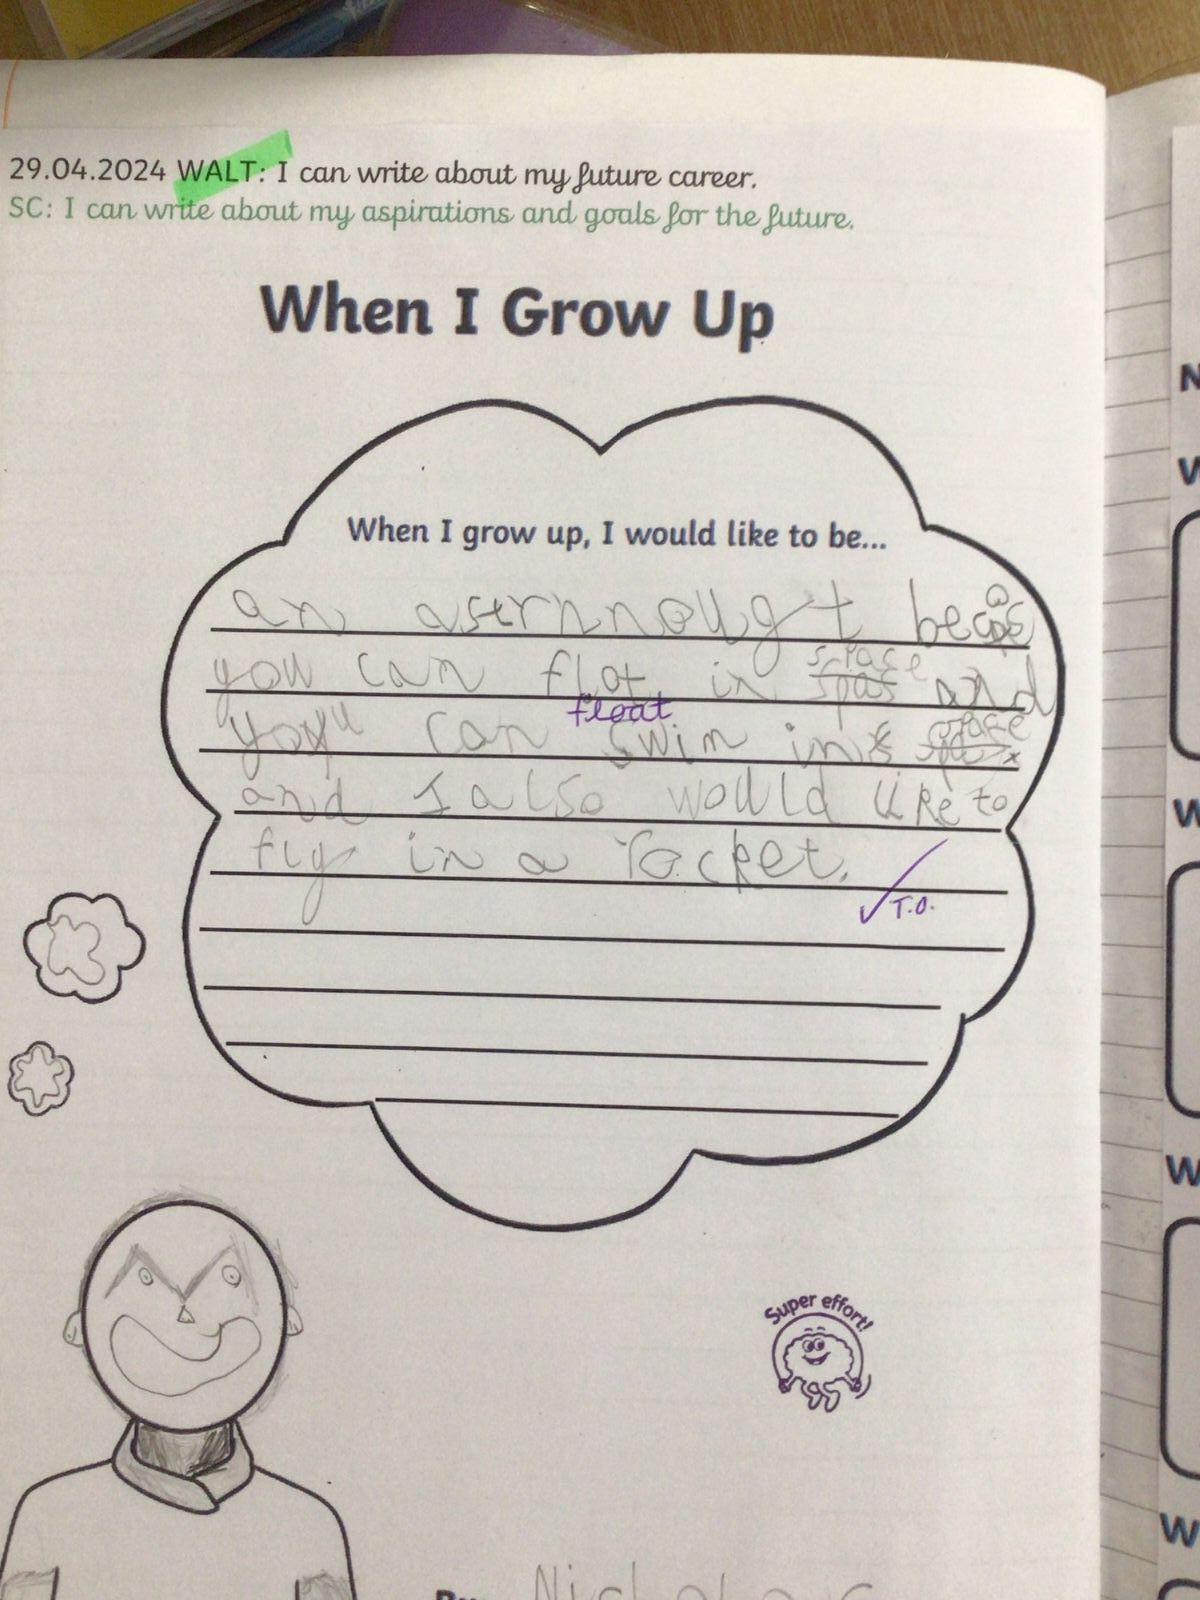 29.04.2024 WALT: I can write about my future career.
SC: I can write about my aspirations and goals for the future.
When I Grow Up
When I grow up, I would like to be...
an asernnought
space
you can flot in spas and
float
space
you can swim in
and I also would like to
fly in a rocket.
T.O.
Super effort!